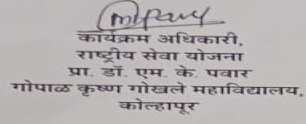 कार्यक्रम अधिकारी,
राष्ट्रीय सेवा योजना
प्रा. डॉ. एम. के. पवार
गोपाळ कृष्ण गोखले महाविद्यालय,
कोल्हापूर